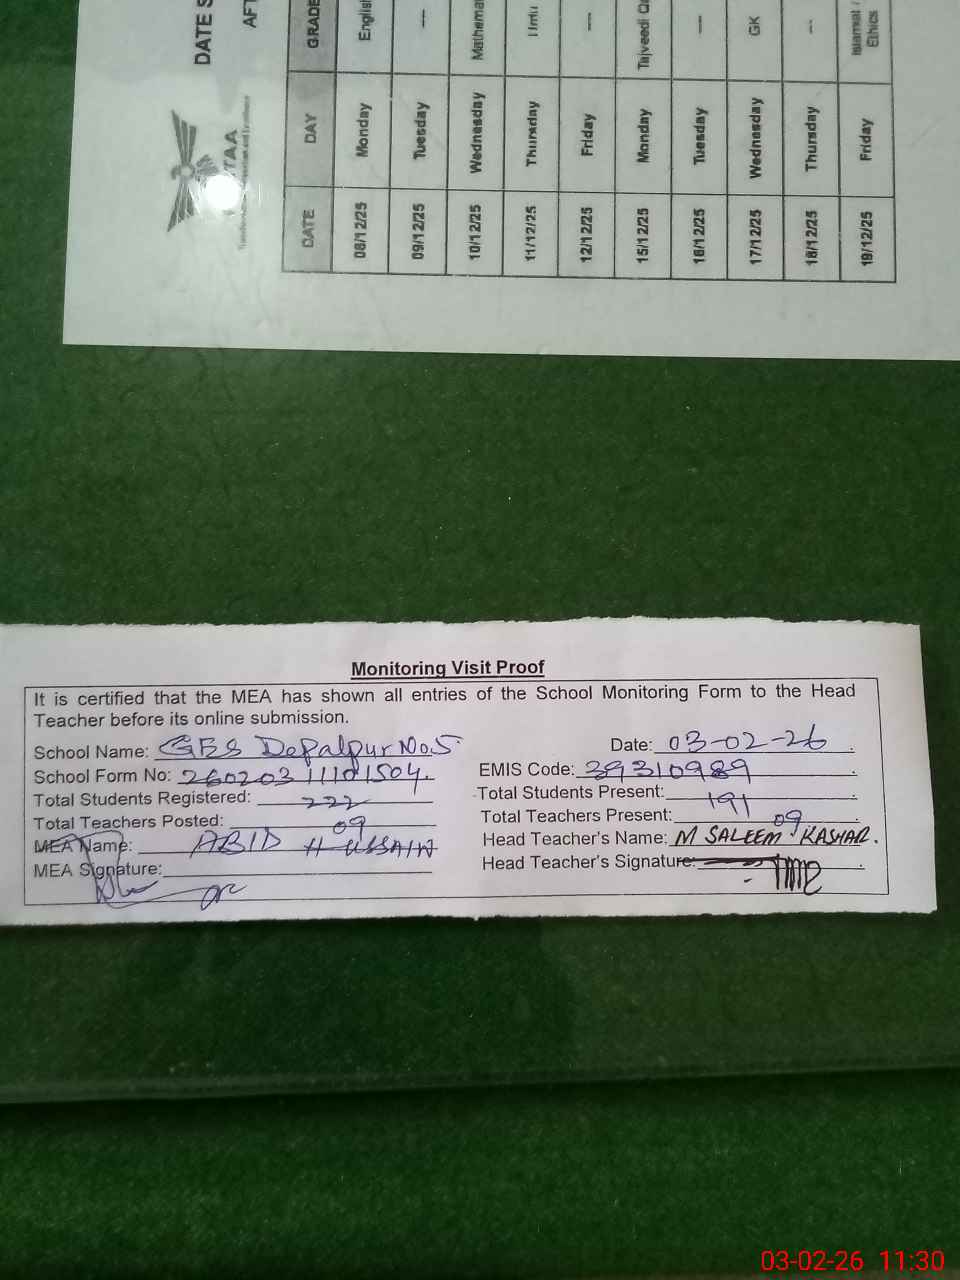 DATE S
AFT
TAA
DATE DAY GRADE
08/12/25 Monday English
09/12/25 Tuesday ---
10/12/25 Wednesday Mathema
11/12/25 Thursday Urdu
12/12/25 Friday ---
15/12/25 Monday Tajveedi
16/12/25 Tuesday ---
17/12/25 Wednesday GK
18/12/25 Thursday ---
19/12/25 Friday Islamiat / Ethics
Monitoring Visit Proof
It is certified that the MEA has shown all entries of the School Monitoring Form to the Head
Teacher before its online submission.
School Name: GES Depalpur No.5 Date: 03-02-26
School Form No: EMIS Code: 39310989
Total Students Registered: 222 Total Students Present: 191
Total Teachers Posted: 09 Total Teachers Present: 09
MEA Name: ABID HUSSAIN Head Teacher's Name: M SALEEM KASHAR.
MEA Signature: Head Teacher's Signature:
03-02-26 11:30